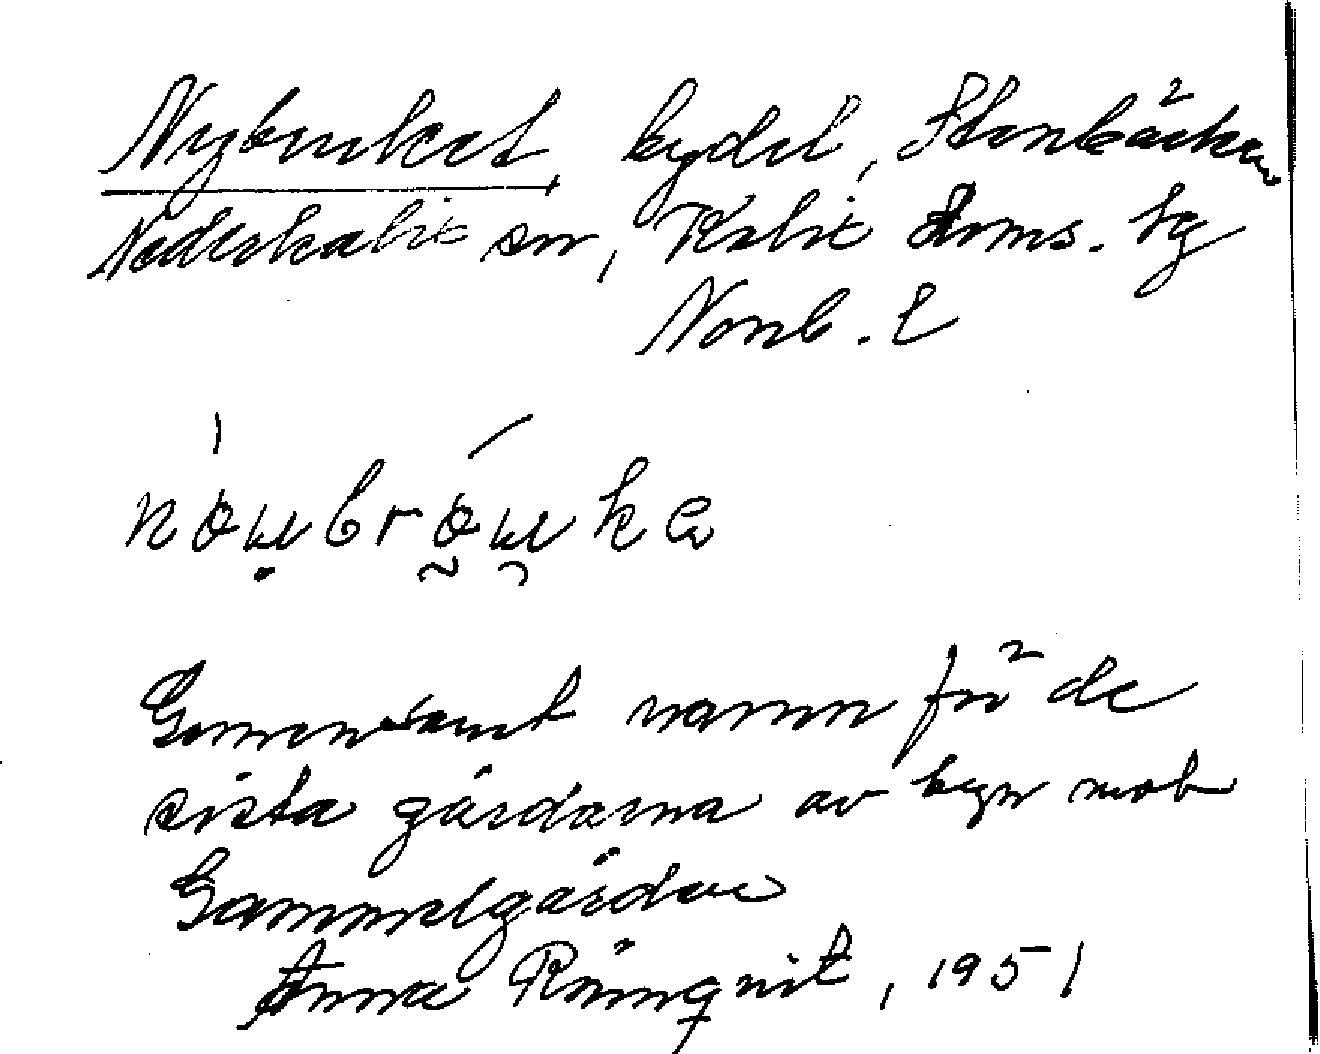 Nybruket, bydel, Stenbäcken
Nederkalix sn, Kalix doms. hg
Norrb. l
nöu̯bröu̯ka
Gemensamt namn för de
sista gårdarna av byn mot
Gammelgården
Anna Rönnqvist, 1951